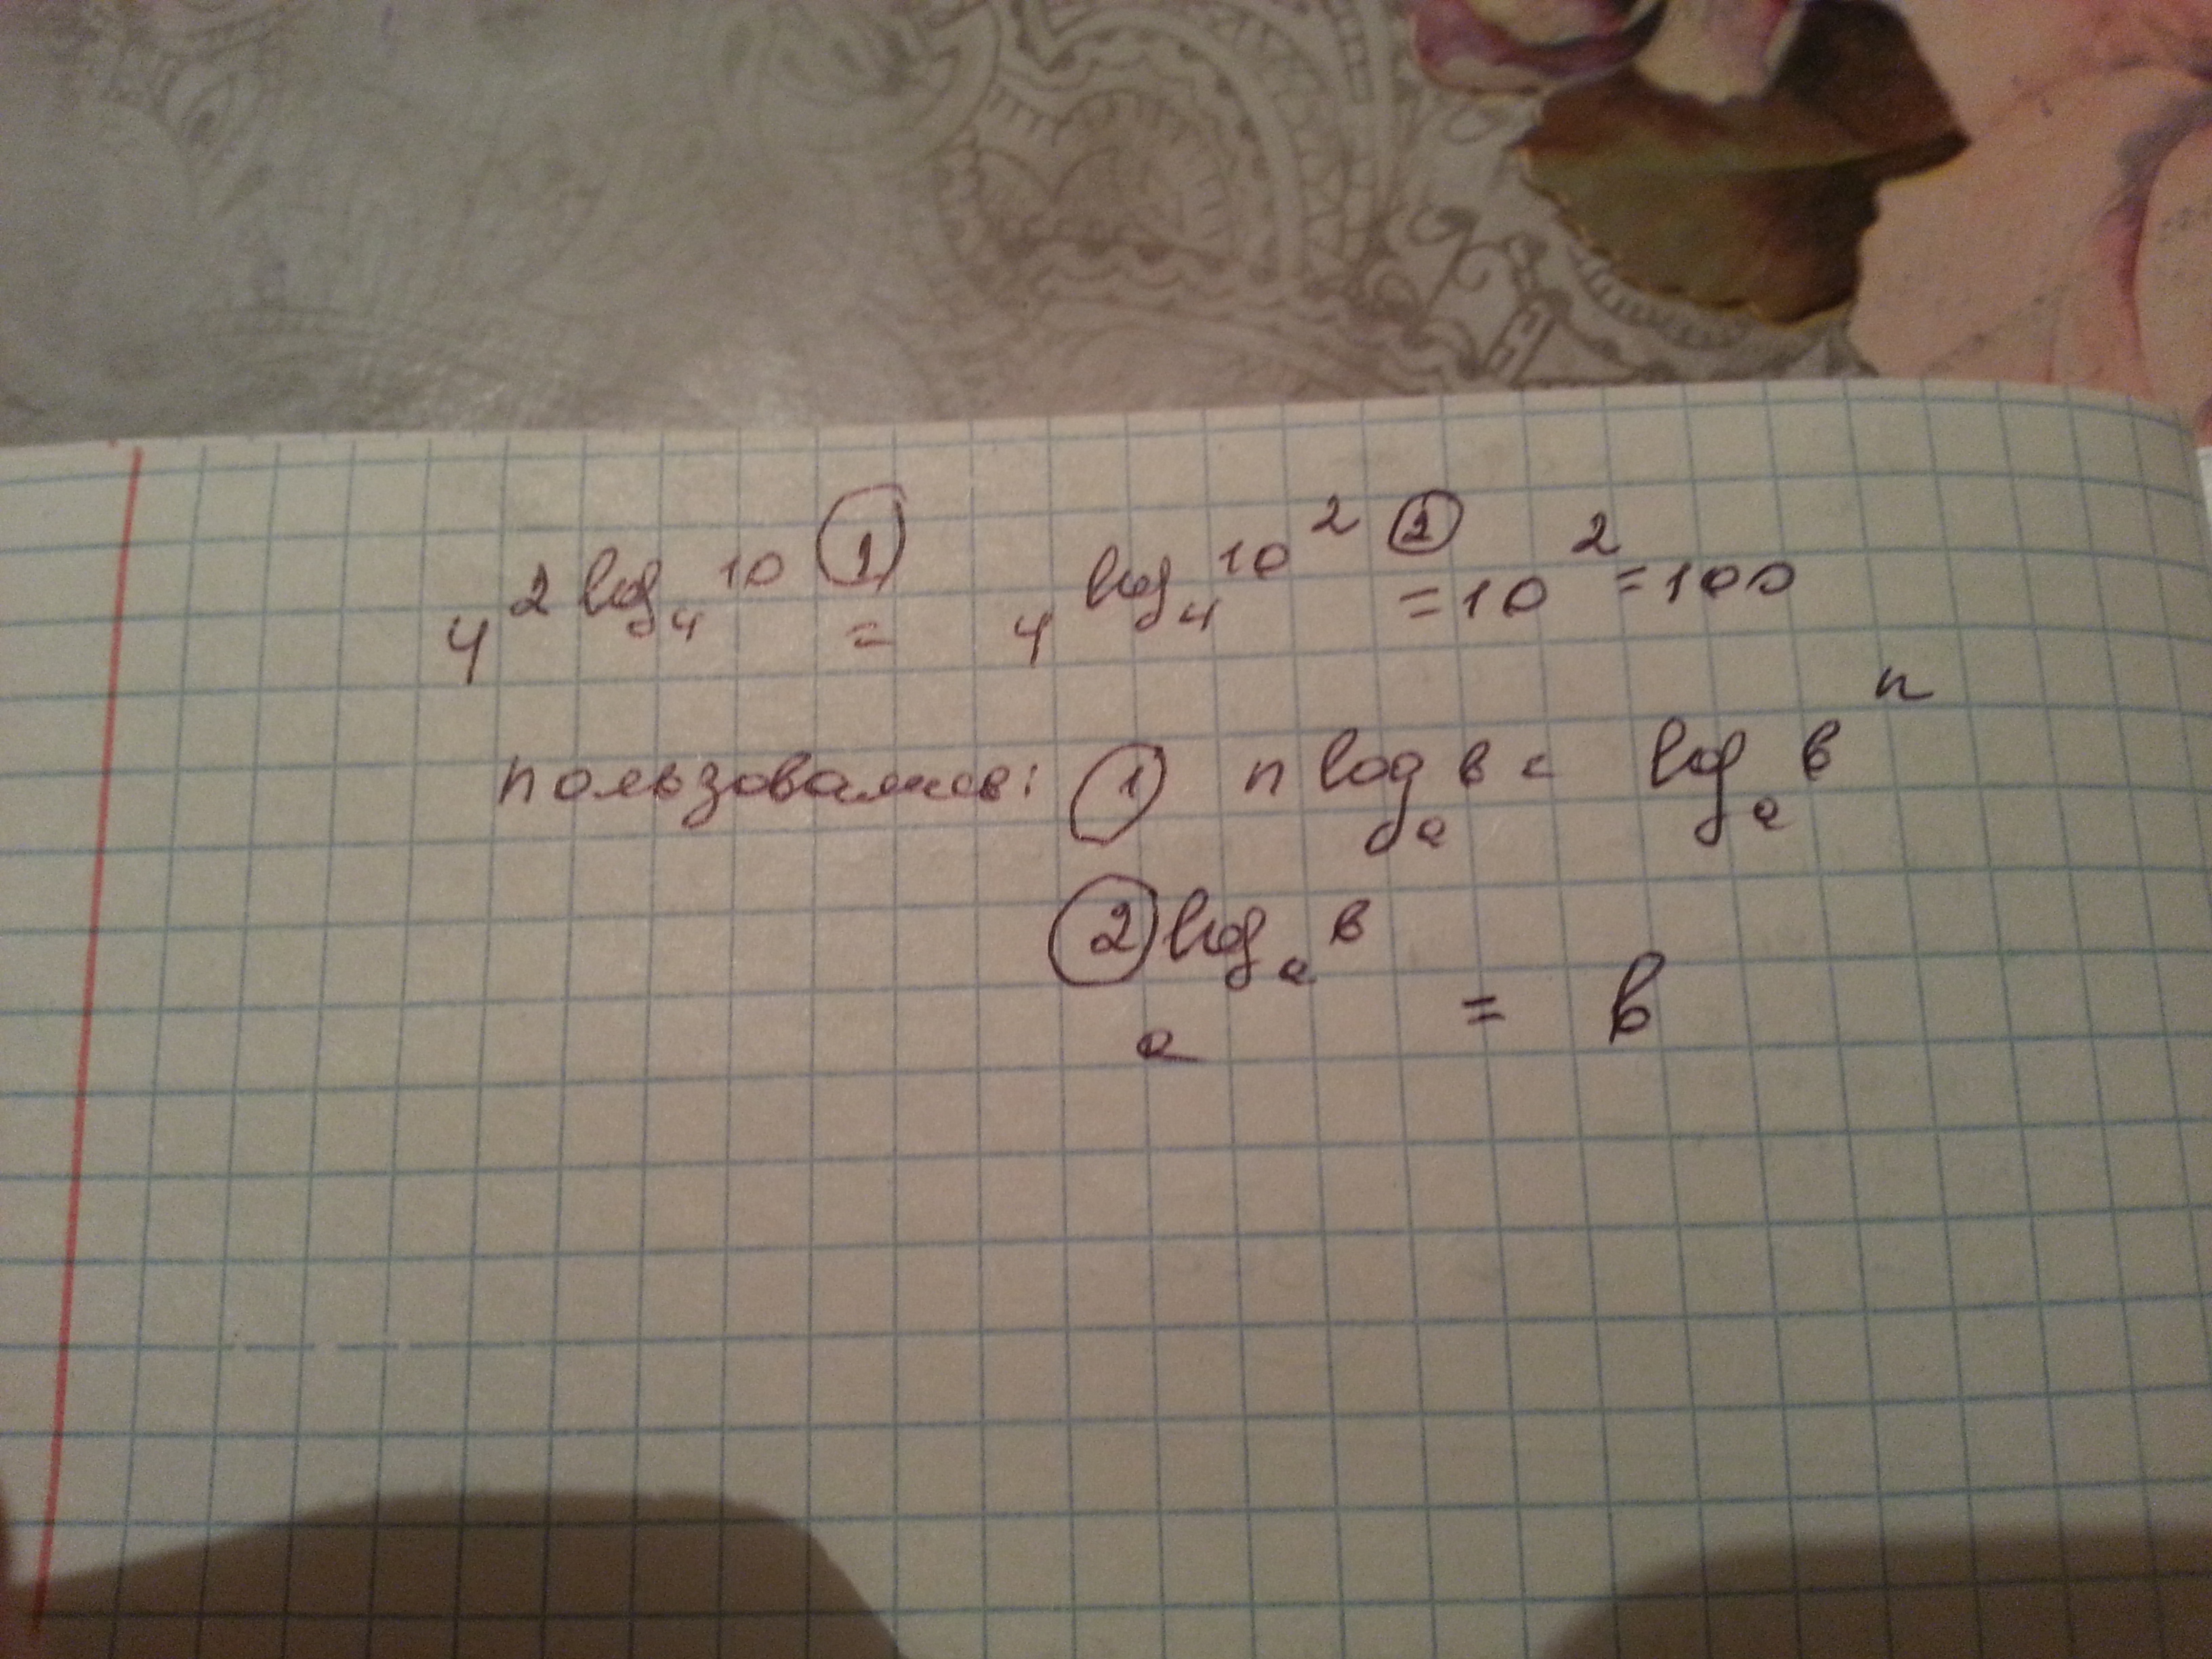 4^{2 log_4 10} ①= 4^{log_4 10^2} ②= 10^2 = 100
пользовались: ① n log_a b = log_a b^n
② a^{log_a b} = b